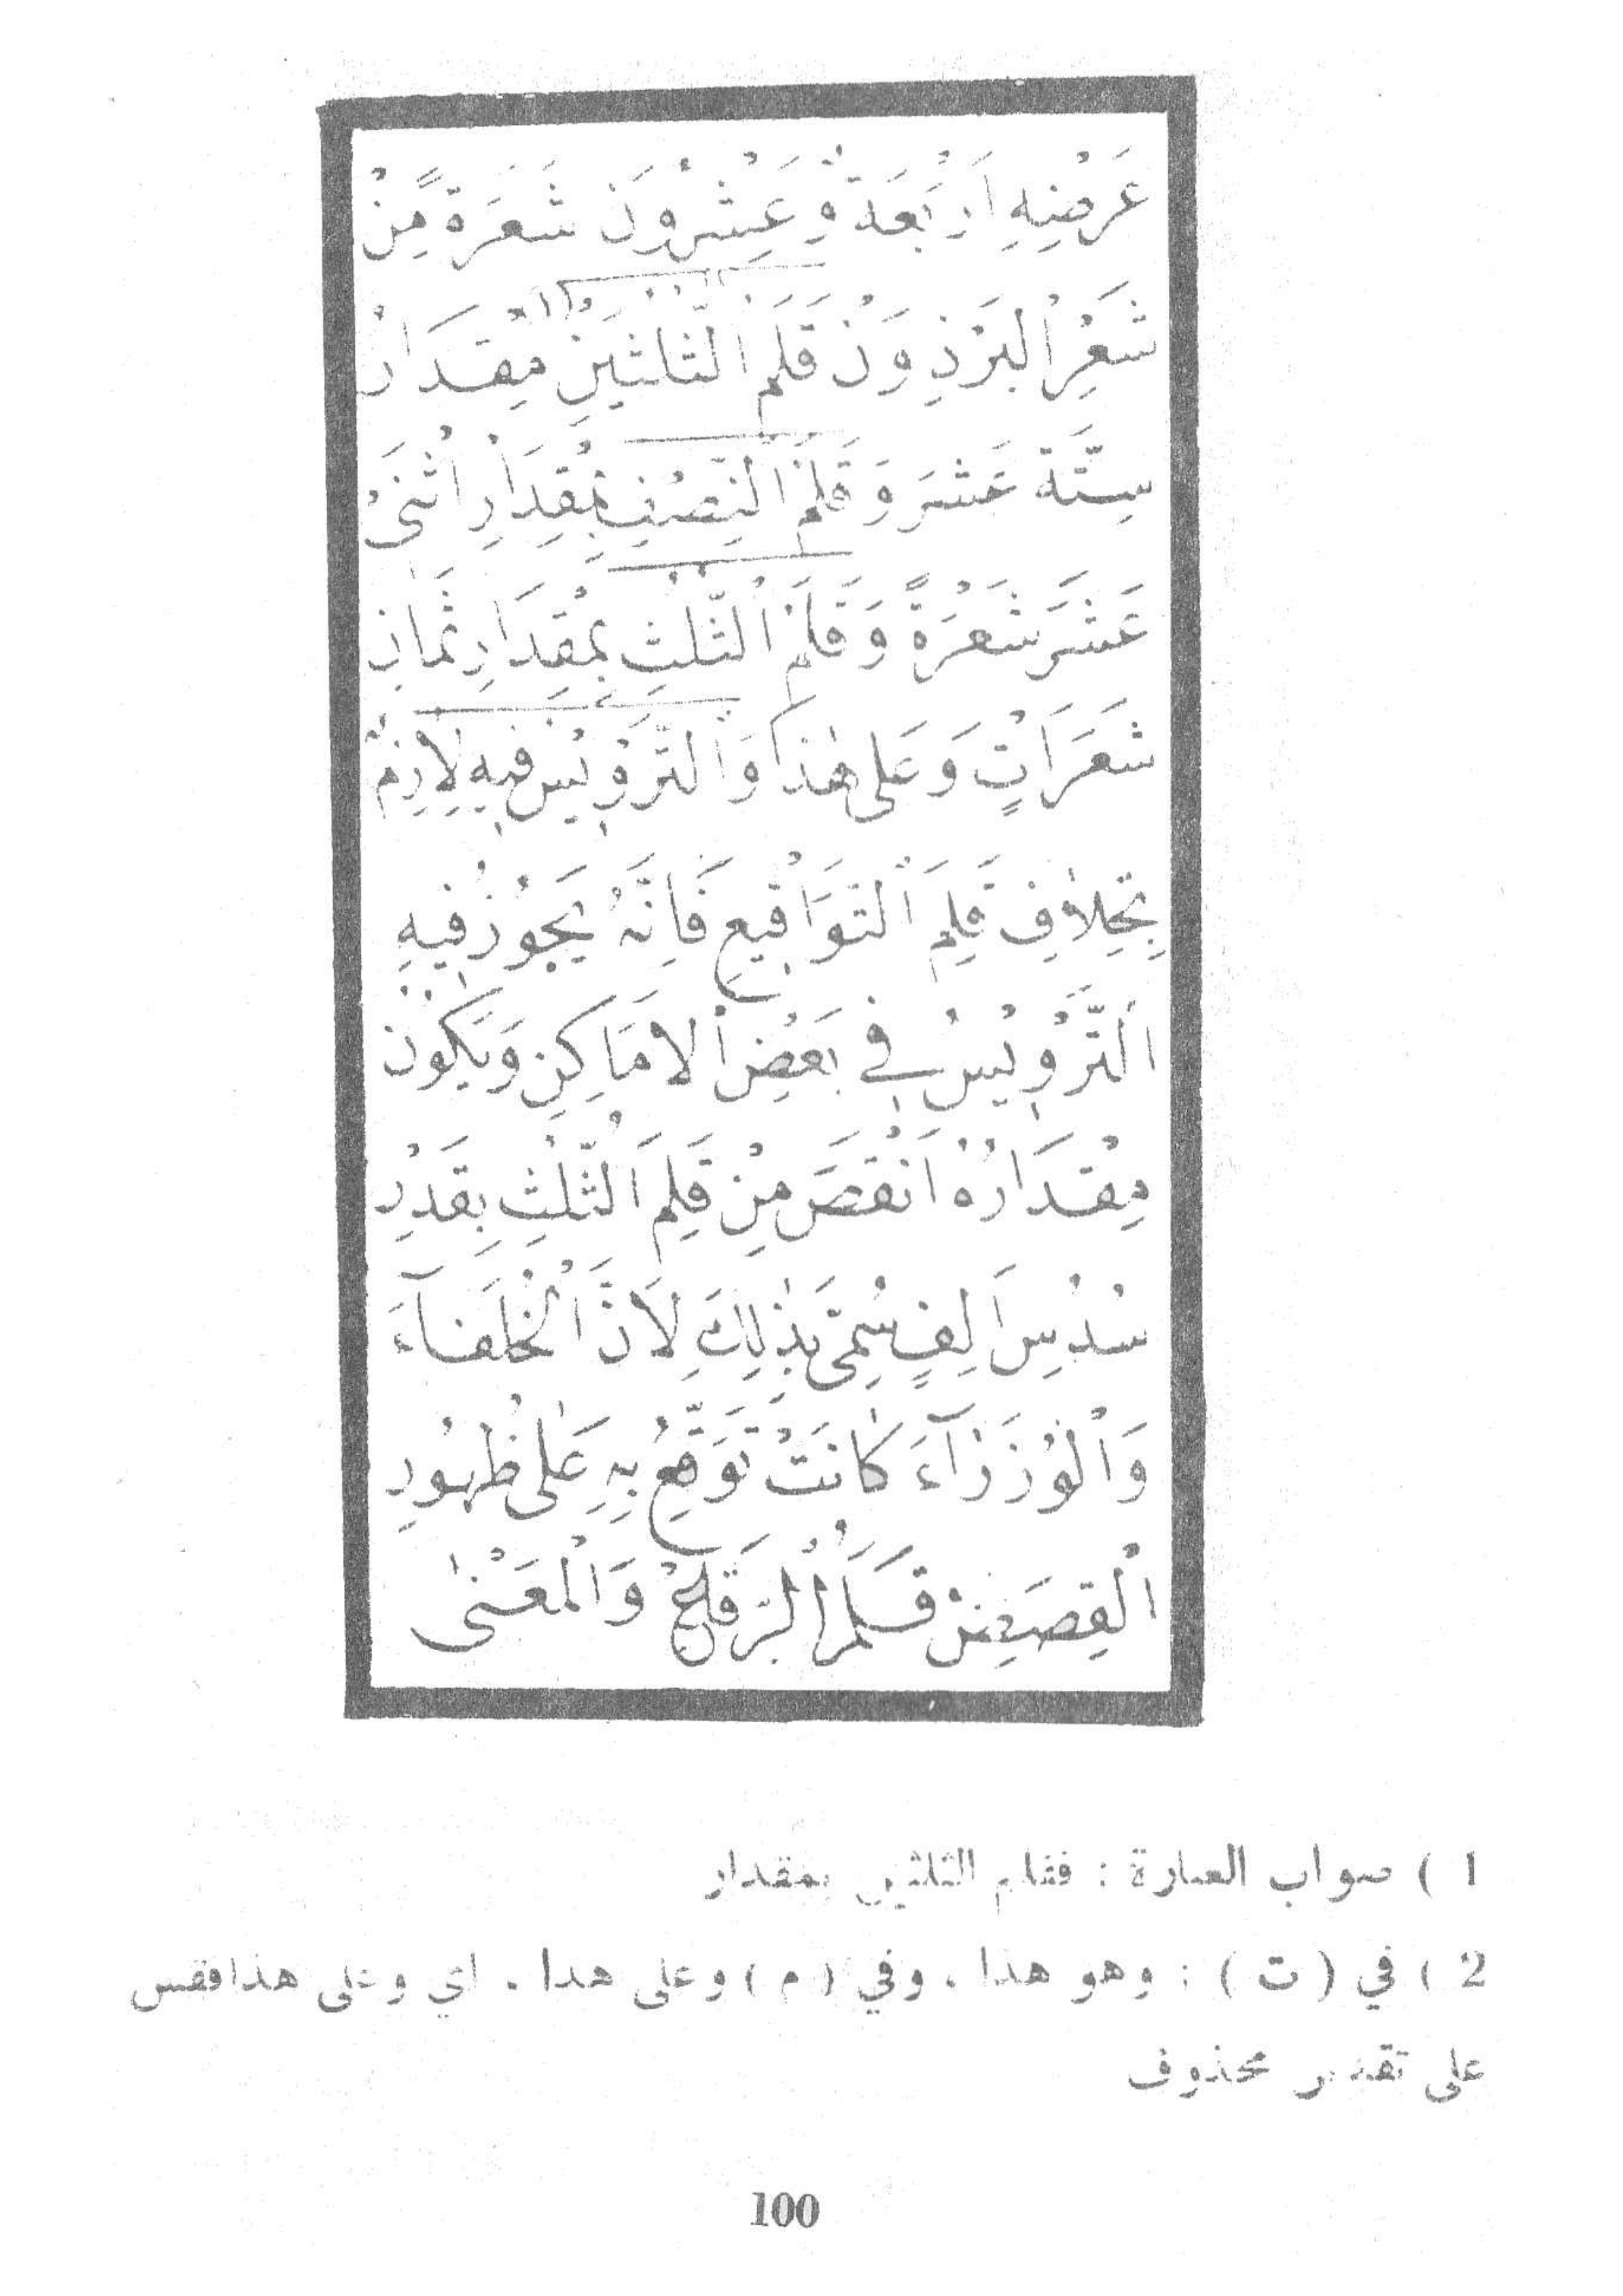 عَرْضِهِ اَرْبَعَةٌ وَعِشْرُونَ شَعَرَةً مِنْ
شَعْرِ الْبَرْذِ وَنْ قَلَمَ الثُّلُثَيْنِ مِقْدَارُ
سِتَّةَ عَشَرَ وَقَلَمَ النِّصْفِ بِمِقْدَارِ اثْنَىْ
عَشَرَ شَعْرَةً وَقَلَمَ الثُّلُثِ بِمِقْدَارِ ثَمَانِ
شَعَرَاتٍ وَعَلَى هٰذَا وَالتَّرْوِيسُ فِيهِ لَازِمٌ
بِخِلَافِ قَلَمِ التَّوَاقِيعِ فَاِنَّهُ يَجُوزُ فِيهِ
اَلتَّرْوِيسُ فِي بَعْضِ الْاَمَاكِنِ وَيَكُونُ
مِقْدَارُهُ اَنْقَصَ مِنْ قَلَمِ الثُّلُثِ بِقَدْرِ
سُدْسِ اَلِفٍ سُمِّىَ بِذٰلِكَ لِاَنَّ الْخُلَفَآءَ
وَالْوُزَرَآءَ كَانَتْ تُوَقِّعُ بِهِ عَلَى ظُهُورِ
الْقِصَصِ قَلَمُ الرِّقَاعِ وَالْمَعْنٰى
1 ) صواب العبارة : فقلم الثلثين بمقدار
2 ) في ( ت ) : وهو هذا . وفي ( م ) وعلى هذا . اي وعلى هذا فقس
على تقدير محذوف
100